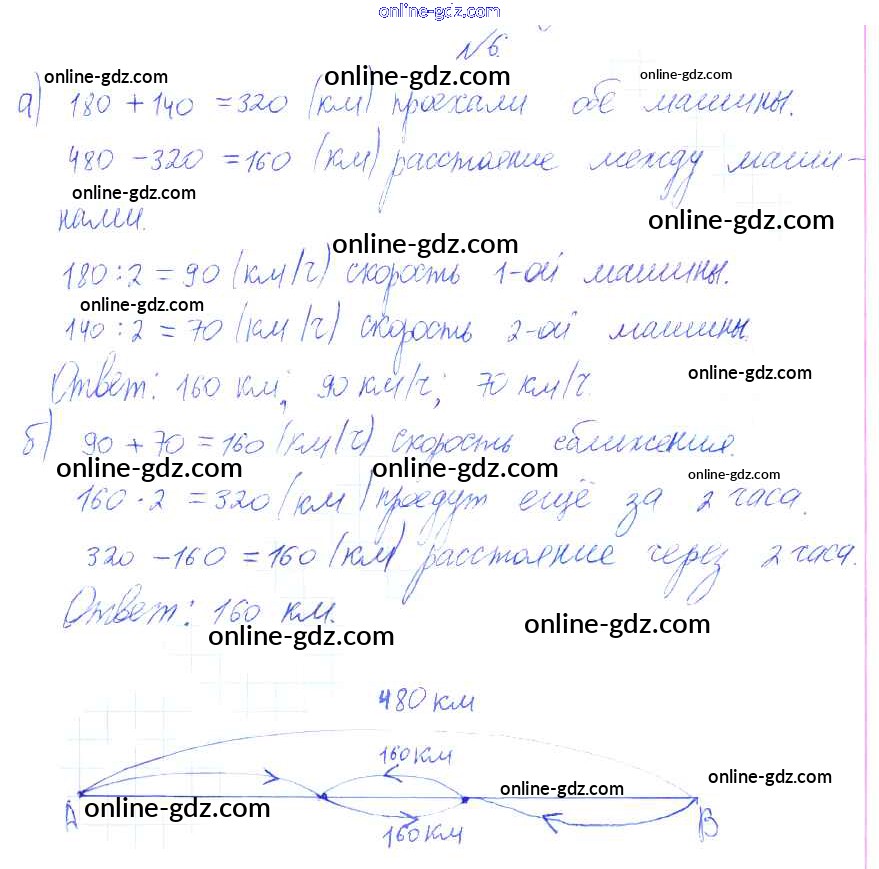 online-gdz.com
№6.
online-gdz.com online-gdz.com online-gdz.com
а) 180 + 140 = 320 (км) проехали обе машины.
480 - 320 = 160 (км) расстояние между маши-
online-gdz.com
нами.
online-gdz.com
online-gdz.com
180 : 2 = 90 (км/ч) скорость 1-ой машины.
online-gdz.com
140 : 2 = 70 (км/ч) скорость 2-ой машины.
online-gdz.com
Ответ: 160 км; 90 км/ч; 70 км/ч.
б) 90 + 70 = 160 (км/ч) скорость сближения.
online-gdz.com online-gdz.com online-gdz.com
160 · 2 = 320 (км) проедут ещё за 2 часа.
320 - 160 = 160 (км) расстояние через 2 часа.
Ответ: 160 км.
online-gdz.com online-gdz.com
480 км
160 км
online-gdz.com
online-gdz.com
online-gdz.com
А В
160 км